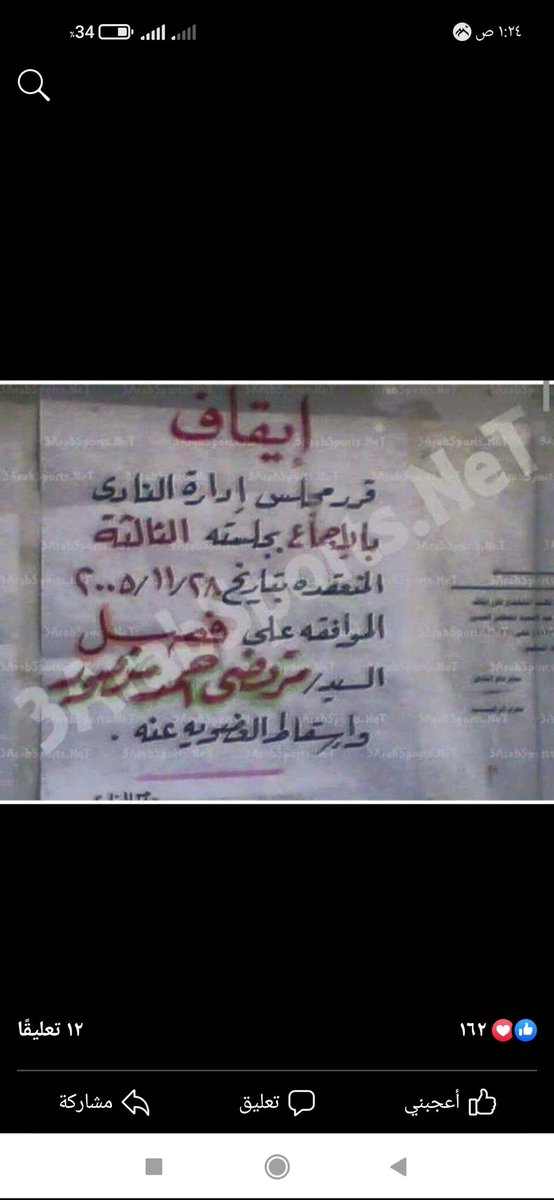 ١:٢٤ ص
34٪
3ArabSports.NeT
إيقاف
قرر مجلس إدارة النادى
بالإجماع بجلسته الثالثة
المنعقده بتاريخ ٢٠٠٥/١١/٢٨
الموافقه على فصل
السيد/ مرتضى احمد منصور
وإسقاط العضويه عنه .
١٦٢
١٢ تعليقًا
أعجبني
تعليق
مشاركة